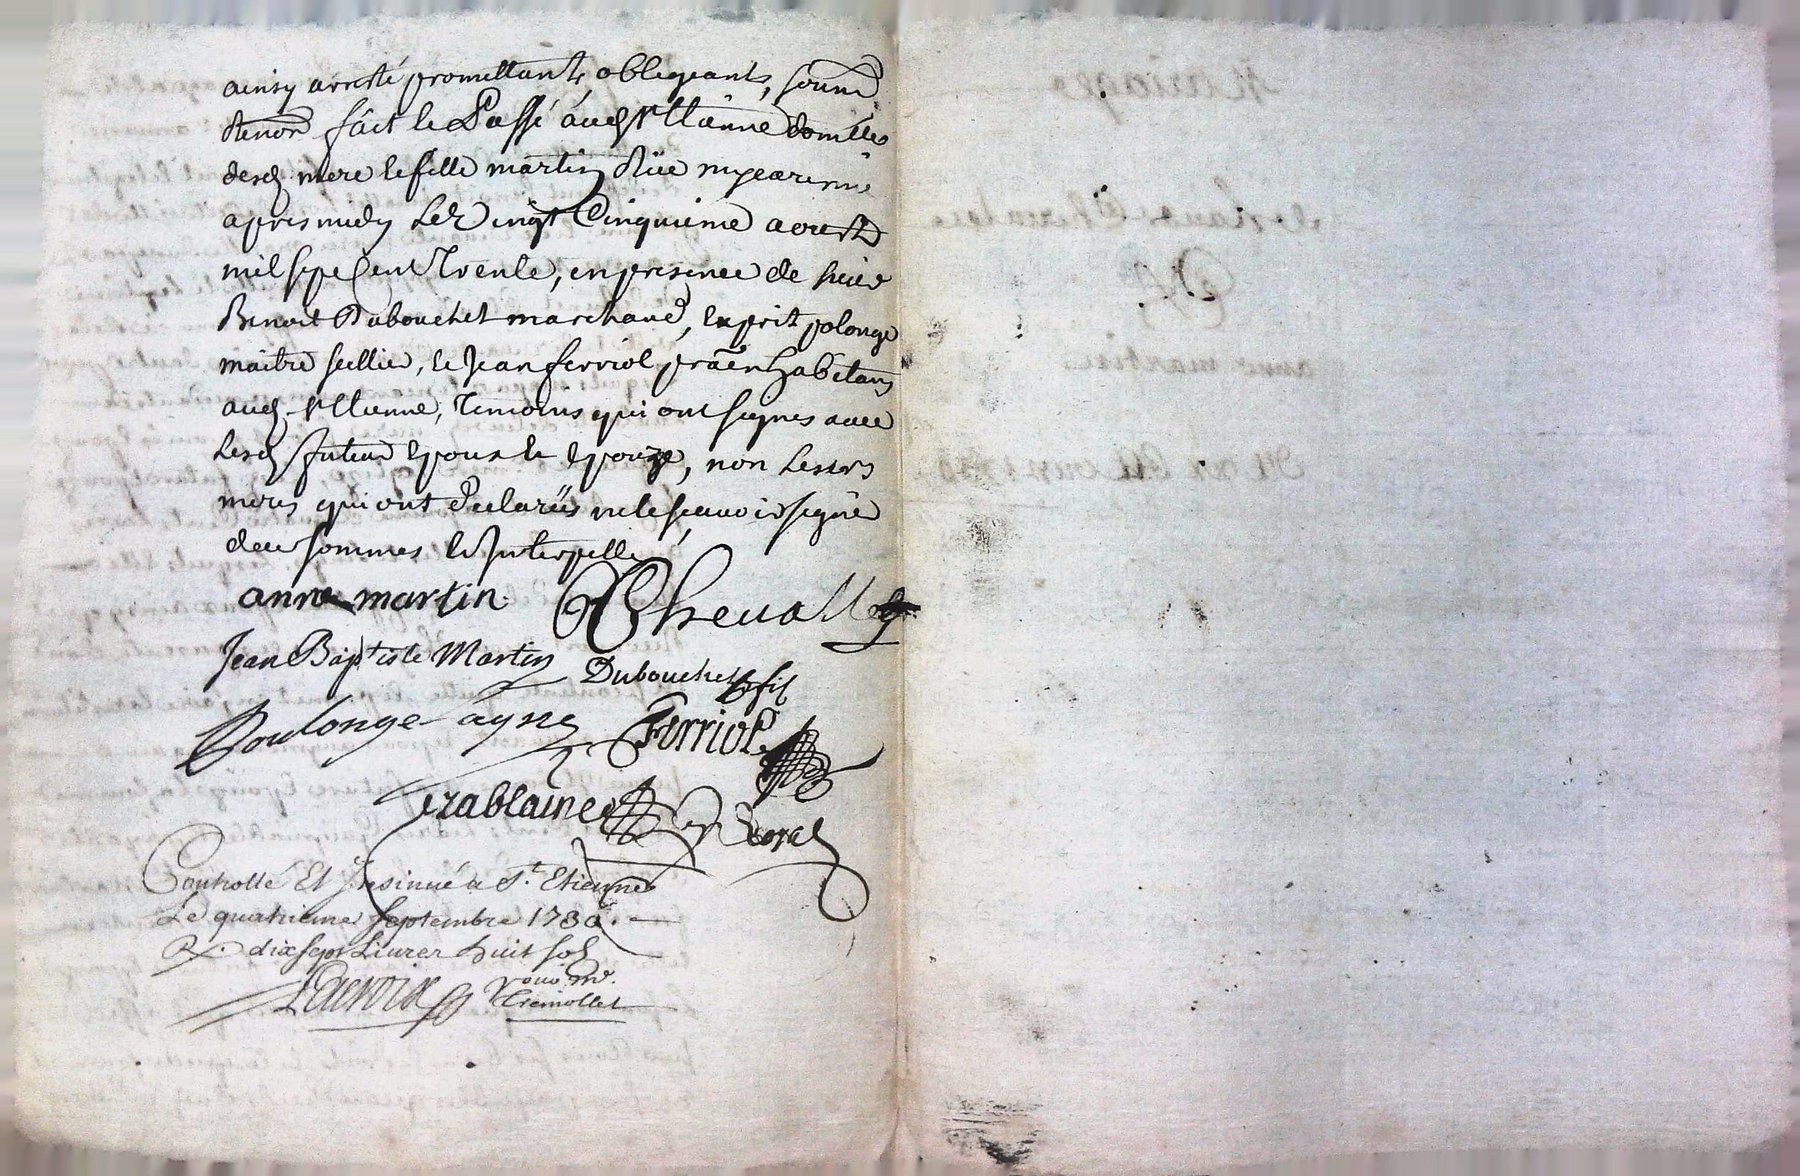 ainsy arresté promettants, obligeants, soumē
renon̄ fait et Passé aud St Etienne domille
desd. mere et fille martin Rüe
apres midy Le Vingt Cinquieme aoust
mil sept Cent Trente, en presence de sieur
Benoit Dubouchet marchand, Esprit polonge
maitre sellier, et Jean ferriol pratēn habitans
aud. St Etienne, Temoins qui ont signes avec
Lesd futeur Epoux et Epouze, non Leurs
meres qui ont declarées ne scavoir signer
de ce sommes et Interpellé
anne martin Chevallier
Jean Baptiste Martin Dubouchet fils
Poulonge ayne ferriol
Crablaine
Controllé Et Insinué a St. Etienne
Le quatrieme Septembre 1730.
R. dix sept Livres huit sols
Lacroix pour mr.
Tremollet
Mariage
de Claude Chevalier
Et
anne martin